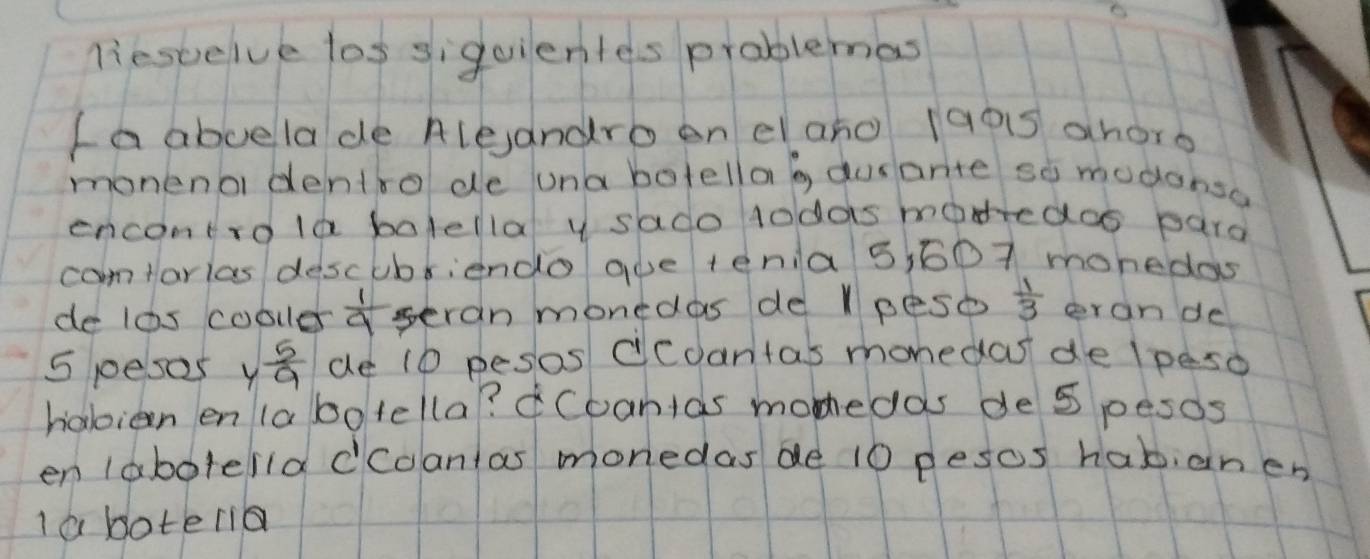 Riesuelve los siguientes problemas
La abuela de Alejandro en el año 1995 ahoro
monenoi dentro de una botella, durante so mudansa
encontro la botella y saco todas monedas para
comtarlas descubriendo que tenia 5,607 monedas
de los coules 1/9 seran monedas de 1 peso 1/3 eran de
5 pesos y 5/9 de 10 pesos ¿Coantas monedas de 1 peso
habian en la botella? ¿Coantas monedas de 5 pesos
en la botella ¿Coantas monedas de 10 pesos habian en
la botella